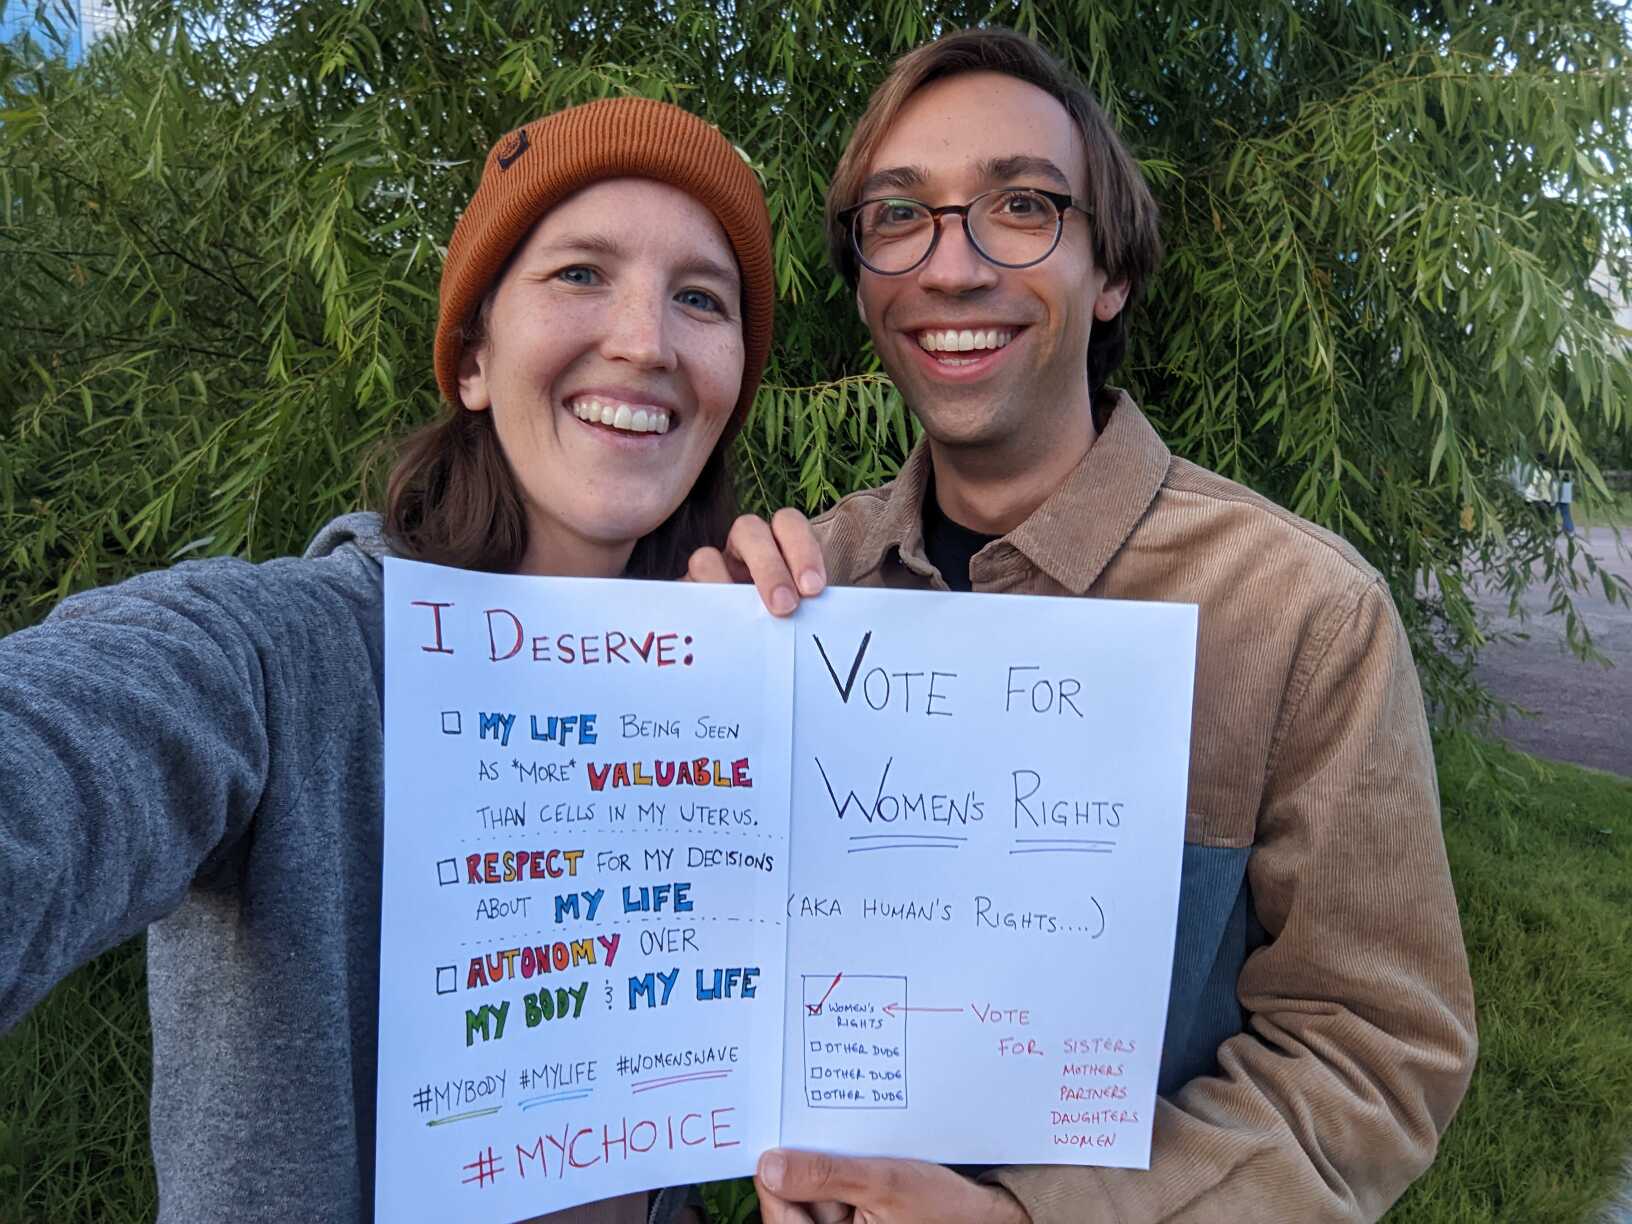 I DESERVE:
MY LIFE BEING SEEN
AS *MORE* VALUABLE
THAN CELLS IN MY UTERUS.
RESPECT FOR MY DECISIONS
ABOUT MY LIFE
AUTONOMY OVER
MY BODY & MY LIFE
#MYBODY #MYLIFE #WOMENSWAVE
#MYCHOICE
VOTE FOR
WOMEN'S RIGHTS
(AKA HUMAN'S RIGHTS....)
WOMEN'S
RIGHTS
OTHER DUDE
OTHER DUDE
OTHER DUDE
VOTE
FOR SISTERS
MOTHERS
PARTNERS
DAUGHTERS
WOMEN